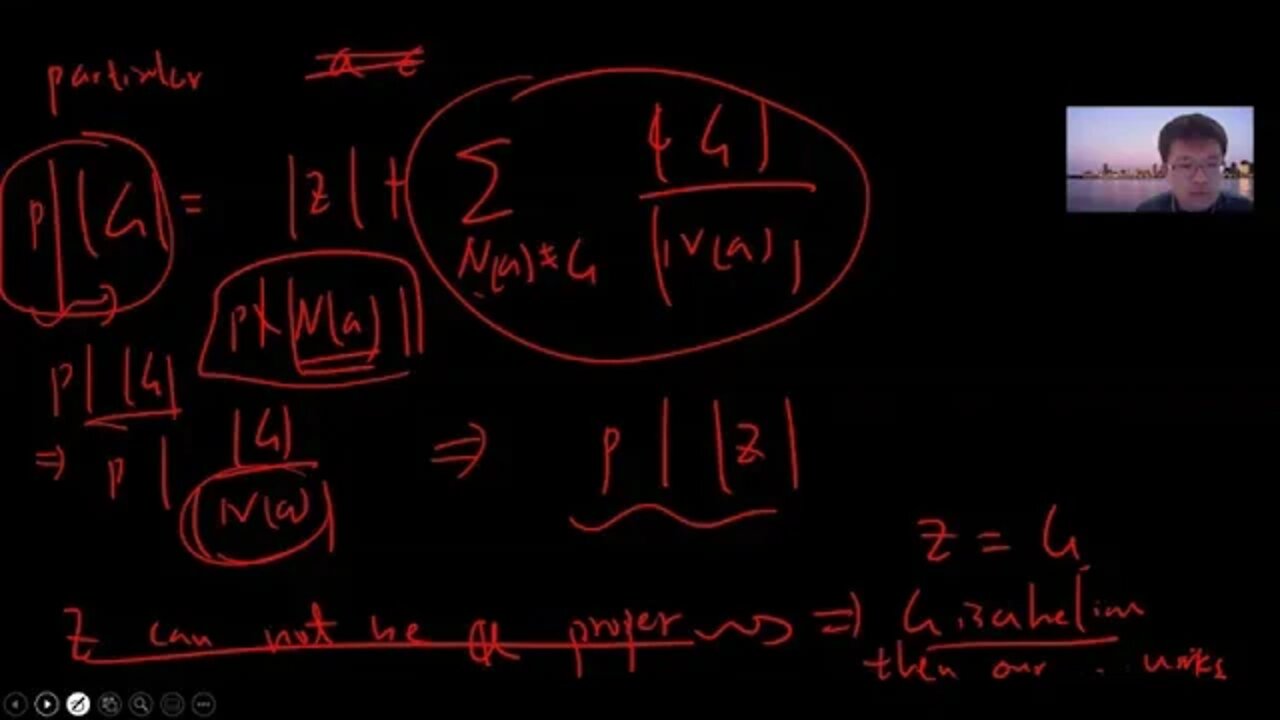 particular
p | |G| = |Z| + Σ |G| / |N(a)|
N(a) ≠ G
p ∤ |N(a)|
p | |G|
⇒ p | |G| / |N(a)| ⇒ p | |Z|
Z = G
Z can not be a proper ⇒ G is abelian
then our works